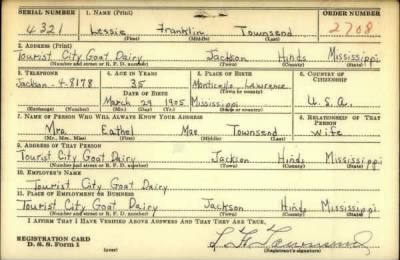 SERIAL NUMBER 1. NAME (Print) ORDER NUMBER
4321 Lessie Franklin Townsend 2708
(First) (Middle) (Last)
2. ADDRESS (Print)
Tourist City Goat Dairy Jackson Hinds Mississippi
(Number and street or R. F. D. number) (Town) (County) (State)
3. TELEPHONE 4. AGE IN YEARS 5. PLACE OF BIRTH 6. COUNTRY OF CITIZENSHIP
35 Monticello - Lawrence
Jackson - 4-8178 DATE OF BIRTH (Town or county)
March 29 1905 Mississippi U.S.A.
(Exchange) (Number) (Mo.) (Day) (Yr.) (State or country)
7. NAME OF PERSON WHO WILL ALWAYS KNOW YOUR ADDRESS 8. RELATIONSHIP OF THAT PERSON
Mrs. Eathel Mae Townsend Wife
(Mr., Mrs., Miss) (First) (Middle) (Last)
9. ADDRESS OF THAT PERSON
Tourist City Goat Dairy Jackson Hinds Mississippi
(Number and street or R. F. D. number) (Town) (County) (State)
10. EMPLOYER'S NAME
Tourist City Goat Dairy
11. PLACE OF EMPLOYMENT OR BUSINESS
Tourist City Goat Dairy Jackson Hinds Mississippi
(Number and street or R. F. D. number) (Town) (County) (State)
I AFFIRM THAT I HAVE VERIFIED ABOVE ANSWERS AND THAT THEY ARE TRUE.
REGISTRATION CARD L. F. Townsend
D. S. S. Form 1 (over) (Registrant's signature)